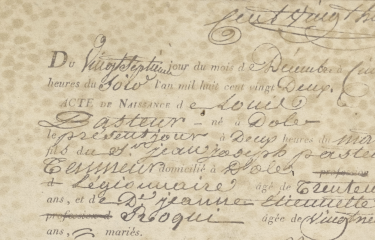 Cent Vingt
Du Vingt Septieme jour du mois de Décembre
heures du Soir l'an mil huit cent vingt Deux.
ACTE DE NAISSANCE de Louis
Pasteur né à Dole
le présent jour à Deux heures du
fils du Sr Jean Joseph Pasteur
Tanneur domicilié à Dole
Légionnaire âgé de Trente
ans, et de De Jeanne Etiennette
profession d Roqui âgée de Vingt
ans, mariés.